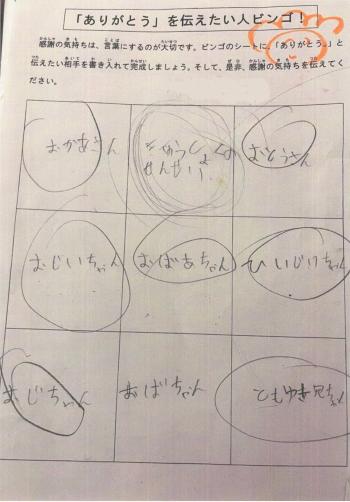 「ありがとう」を伝えたい人ビンゴ！
感謝の気持ちは、言葉にするのが大切です。ビンゴのシートに、「ありがとう。」と
伝えたい相手を書き入れて完成しましょう。そして、是非、感謝の気持ちを伝えてく
ださい。
おかあさん
きゅうしょくの
せんせい
おとうさん
おじいちゃん
おばあちゃん
ひいじいちゃん
おじちゃん
おばちゃん
ともゆき兄ちゃん